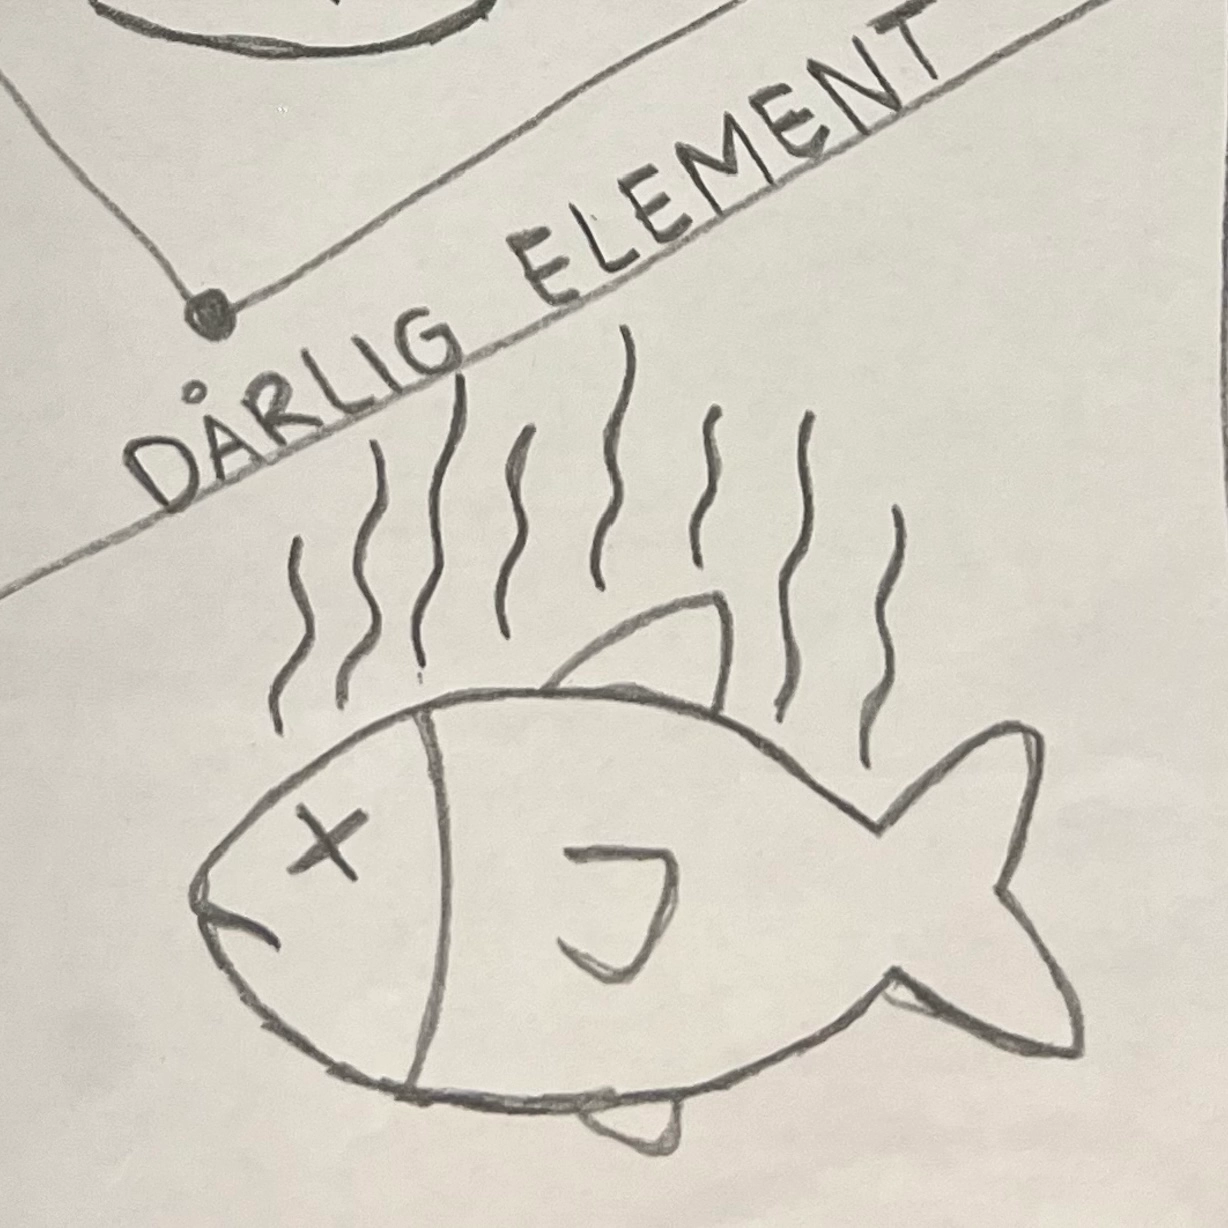 DÅRLIG ELEMENT